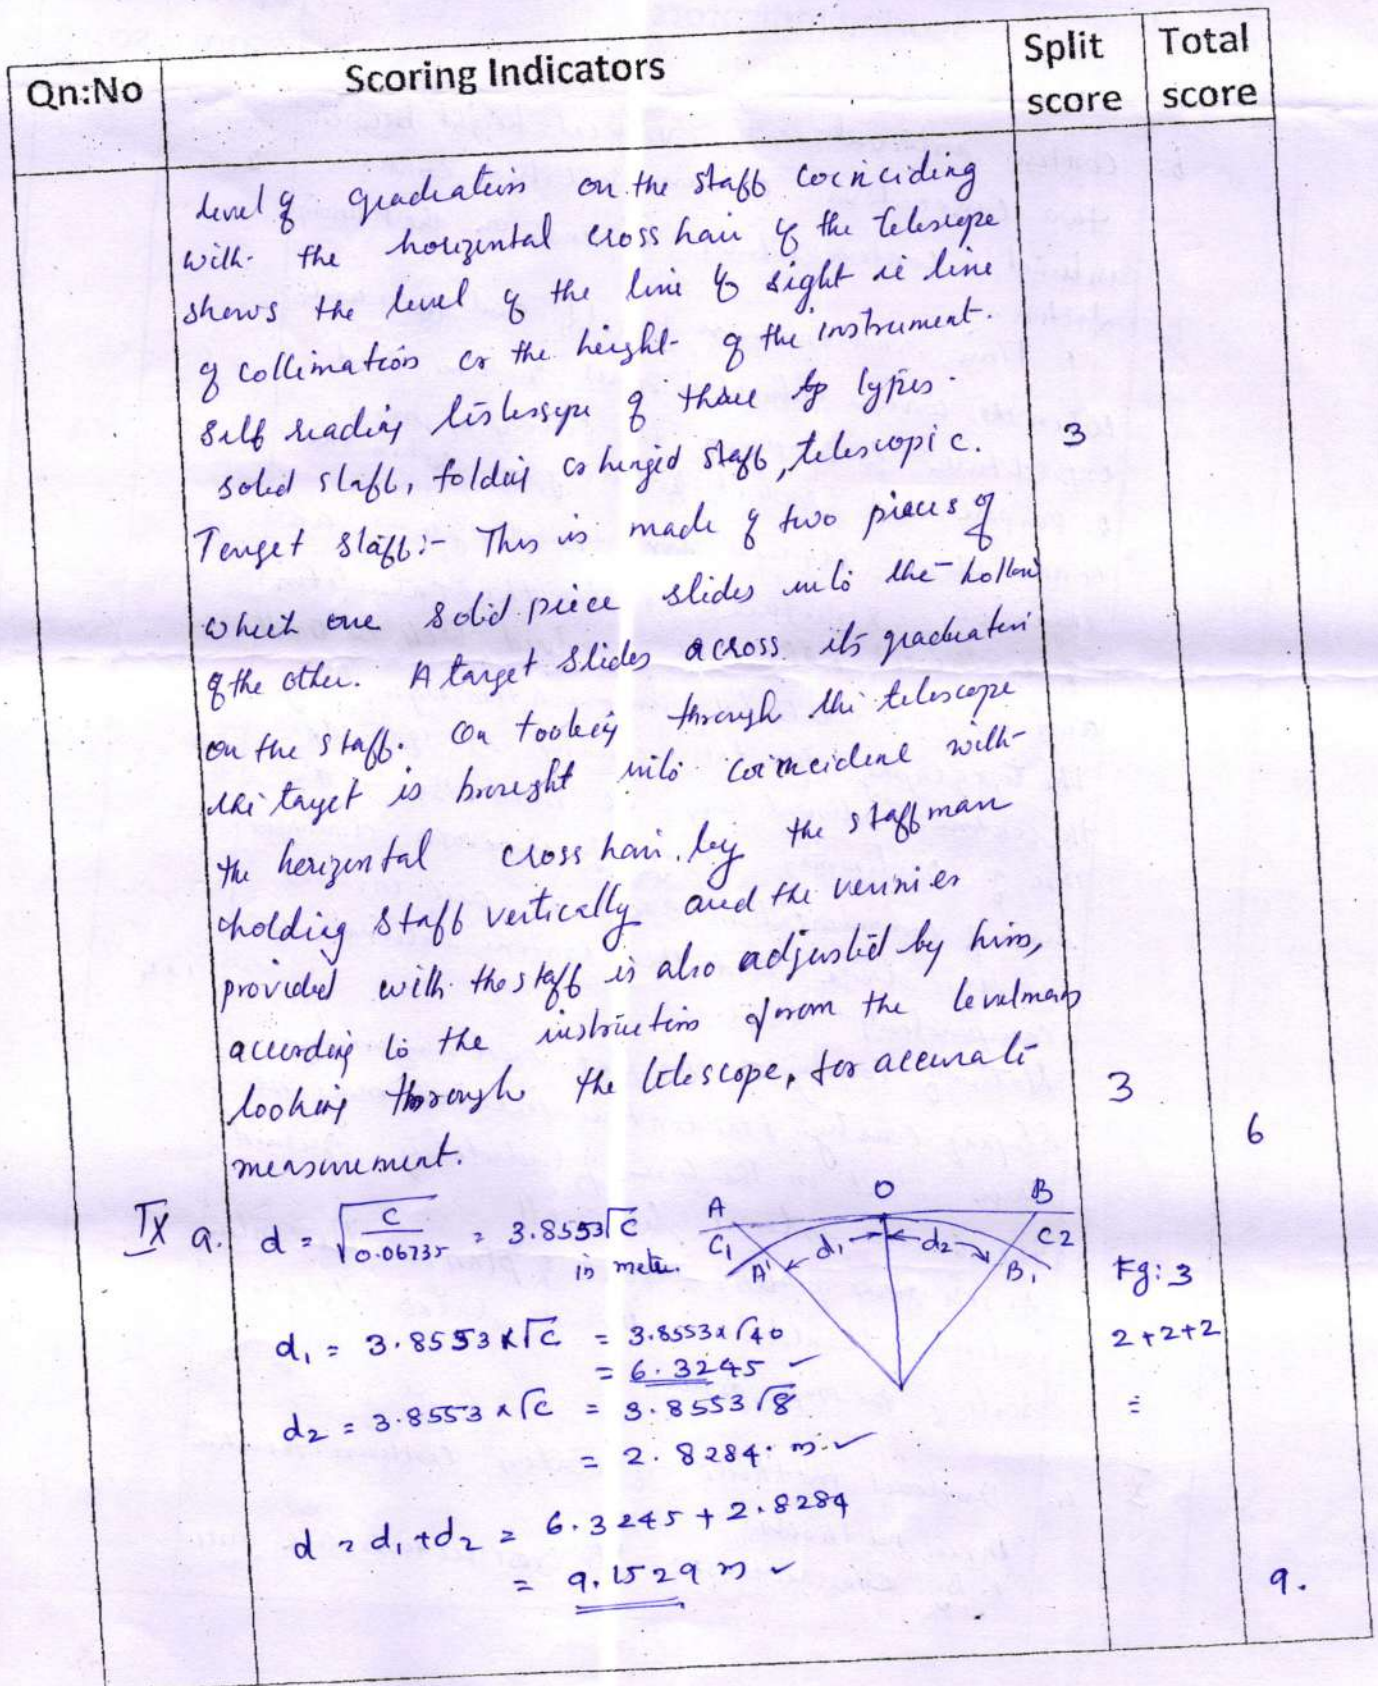 Qn:No Scoring Indicators Split score Total score
level of graduation on the staff coinciding
with the horizontal cross hair of the telescope
shows the level of the line of sight ie line
of collimation or the height of the instrument.
Self reading of three types.
solid staff, folding or hinged staff, telescopic. 3
Target staff:- This is made of two pieces of
which one solid piece slides into the hollow
of the other. A target slides across its graduation
on the staff. On looking through the telescope
the target is brought into coincident with
the horizontal cross hair by the staff man
holding staff vertically and the vernier
provided with the staff is also adjusted by him,
according to the instruction from the levelman
looking through the telescope, for accurate 3
measurement. 6
IX a. d = √(C/0.06735) = 3.8553√C in meter.
A O B
C1 A' d1 d2 B1 C2
Fg: 3
d1 = 3.8553 x √C = 3.8553 x √40 2+2+2
= 6.3245 ✓
d2 = 3.8553 x √C = 3.8553 √8 =
= 2.8284. m ✓
d = d1 + d2 = 6.3245 + 2.8284
= 9.1529 m ✓ 9.